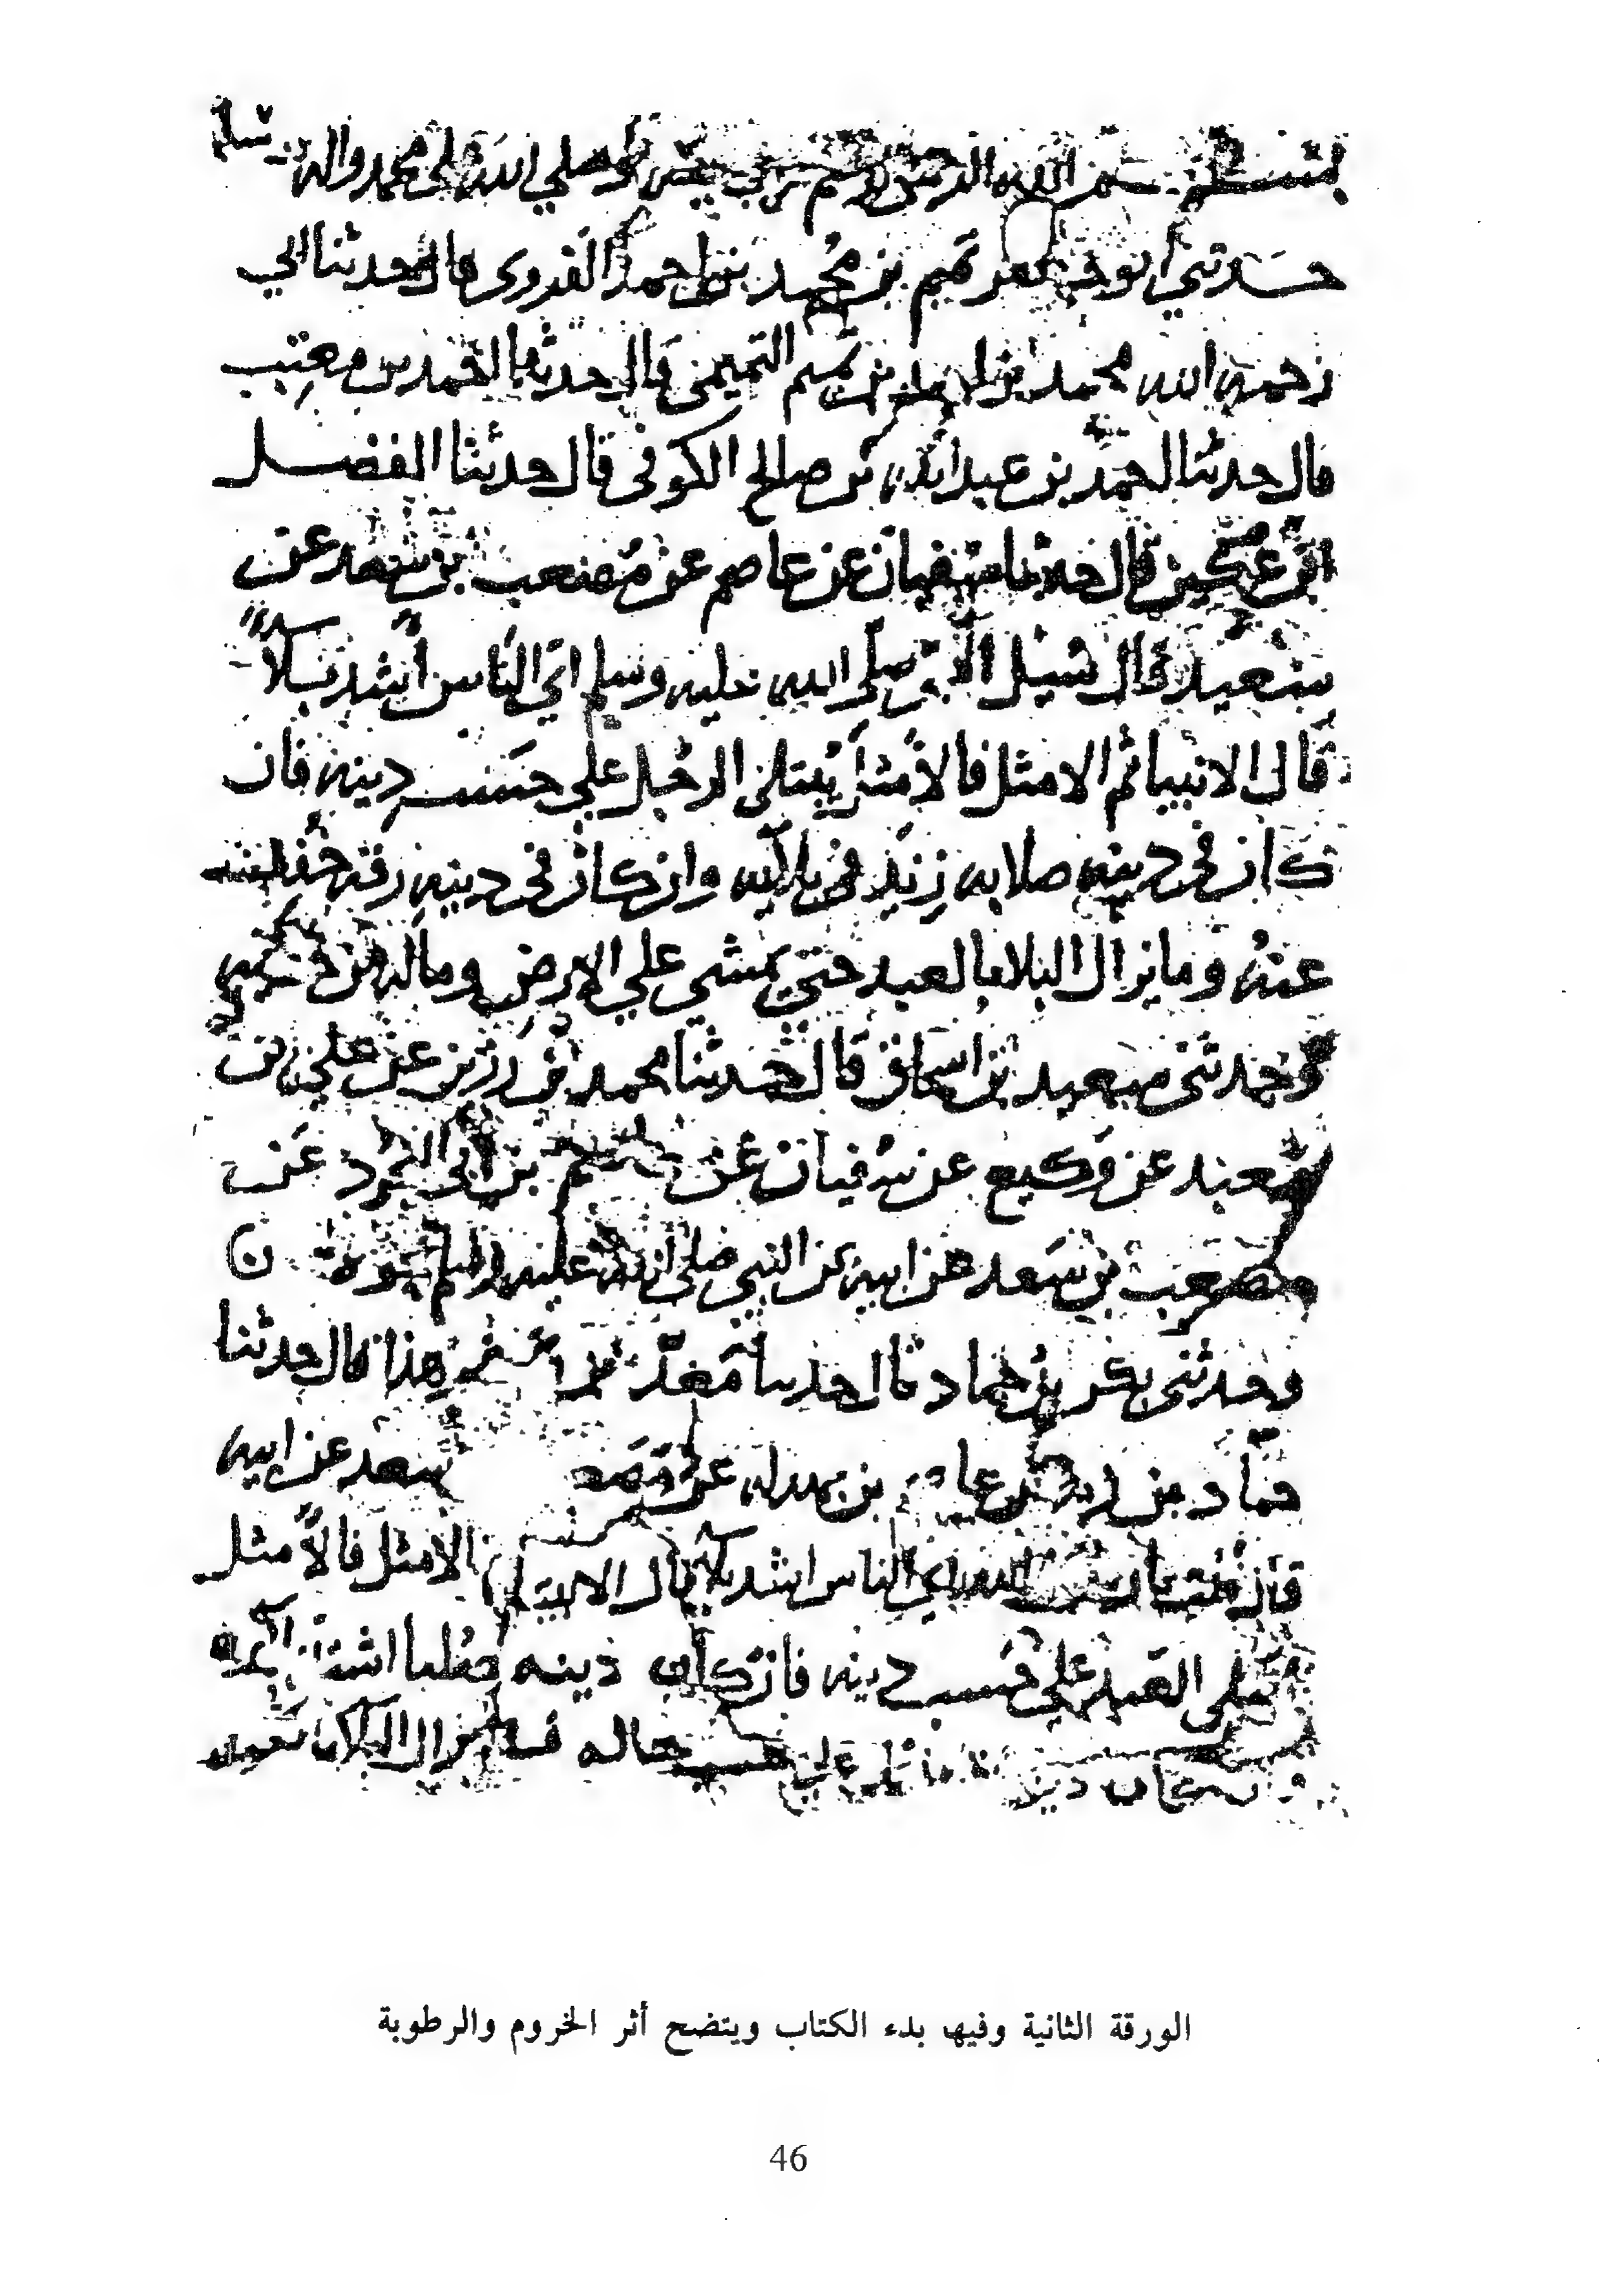 بسم الله الرحمن الرحيم وصلى الله على محمد واله وسلم
حدثني ابو جعفر تميم بن محمد بن احمد القروى قال حدثنا ابي
رحمه الله محمد بن احمد بن تميم التميمي قال حدثنا احمد بن معتب
قال حدثنا احمد بن عبد الله بن صالح الكوفي قال حدثنا الفضل
ابن دكين قال حدثنا سفيان عن عاصم عن مصعب بن سعد عن
سعيد قال سئل النبي صلى الله عليه وسلم اي الناس اشد بلاً
قال الانبيا ثم الامثل فالأمثل يبتلى الرجل على حسب دينه فان
كان في دينه صلابه زيد في بلايه وان كان في دينه رقه خفف
عنه وما يزال البلا بالعبد حتى يمشي على الارض وماله من خطيه
وحدثني سعيد بن اسحاق قال حدثنا محمد بن رزين عن علي بن
معبد عن وكيع عن سفيان عن عاصم بن ابي النجود عن
مصعب بن سعد عن ابيه عن النبي صلى الله عليه وسلم نحوه ن
وحدثني بكر بن حماد قال حدثنا مسدد هذا قال حدثنا
حماد بن زيد عن عاصم بن بهدله عن مصعب سعد عن ابيه
قال قلت يا رسول الله اي الناس اشد بلا قال الانبيا الامثل فالأمثل
يبتلى العبد على حسب دينه فان كان دينه صلبا اشتد بلاه
دينه على حسب حاله فما يزال البلا
الورقة الثانية وفيها بدء الكتاب ويتضح أثر الخروم والرطوبة
46